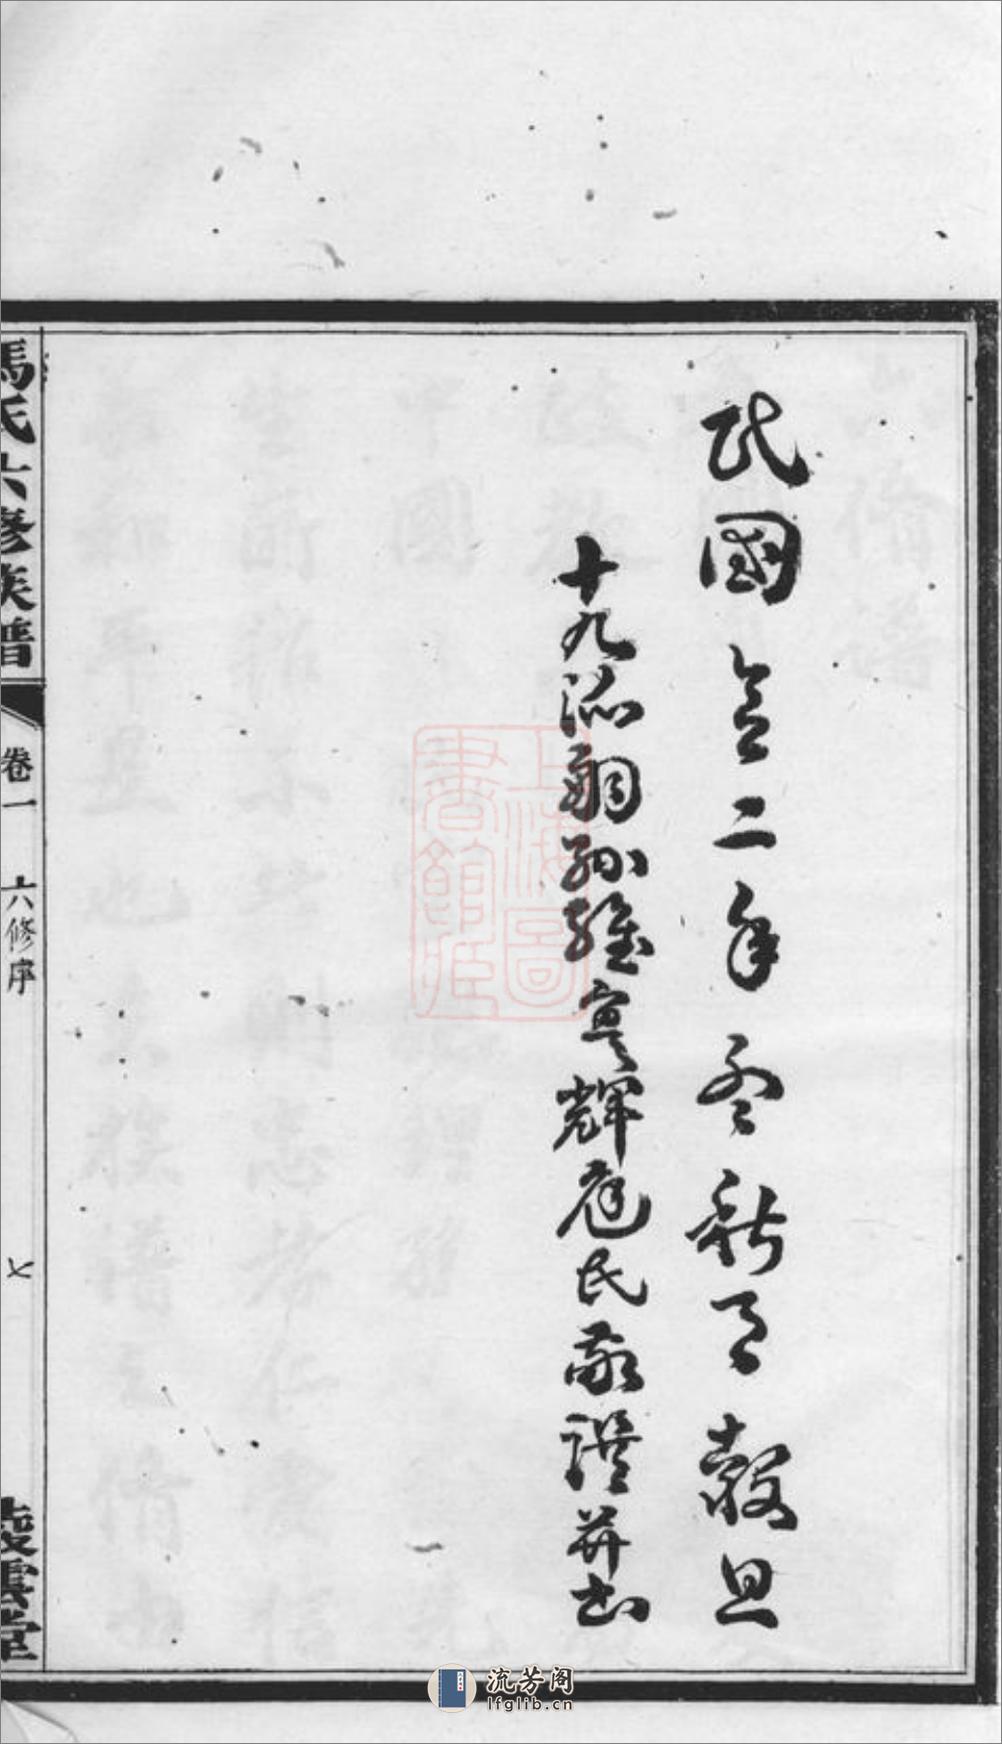 民國念二年冬新正月穀旦
十九派嗣孫維寅輝庭氏敬譔并書
馮氏六修族譜
卷一
六修序
七
凌雲堂
上海圖書館藏
流芳阁
lfglib.cn